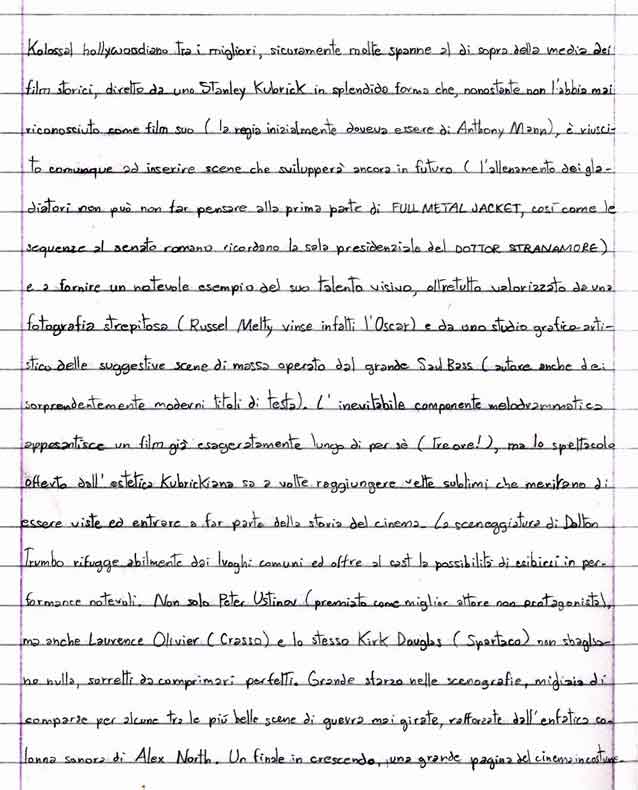 Kolossal hollywoodiano tra i migliori, sicuramente molte spanne al di sopra della media dei
film storici, diretto da uno Stanley Kubrick in splendida forma che, nonostante non l'abbia mai
riconosciuto come film suo (la regia inizialmente doveva essere di Anthony Mann), è riusci-
to comunque ad inserire scene che svilupperà ancora in futuro (l'allenamento dei gla-
diatori non può non far pensare alla prima parte di FULL METAL JACKET, così come le
sequenze al senato romano ricordano la sala presidenziale del DOTTOR STRANAMORE)
e a fornire un notevole esempio del suo talento visivo, oltretutto valorizzato da una
fotografia strepitosa (Russel Melty vinse infatti l'Oscar) e da uno studio grafico-arti-
stico delle suggestive scene di massa operato dal grande Saul Bass (autore anche dei
sorprendentemente moderni titoli di testa). L'inevitabile componente melodrammatica
appesantisce un film già esageratamente lungo di per sè (Tre ore!), ma lo spettacolo
offerto dall'estetica Kubrickiana sa a volte raggiungere vette sublimi che meritano di
essere viste ed entrare a far parte della storia del cinema. La sceneggiatura di Dalton
Trumbo rifugge abilmente dai luoghi comuni ed offre al cast la possibilità di esibirsi in per-
formance notevoli. Non solo Peter Ustinov (premiato come miglior attore non protagonista),
ma anche Laurence Olivier (Crasso) e lo stesso Kirk Douglas (Spartaco) non sbaglia-
no nulla, sorretti da comprimari perfetti. Grande sfarzo nelle scenografie, migliaia di
comparse per alcune tra le più belle scene di guerra mai girate, rafforzate dall'enfatica co-
lonna sonora di Alex North. Un finale in crescendo, una grande pagina del cinema in costume.